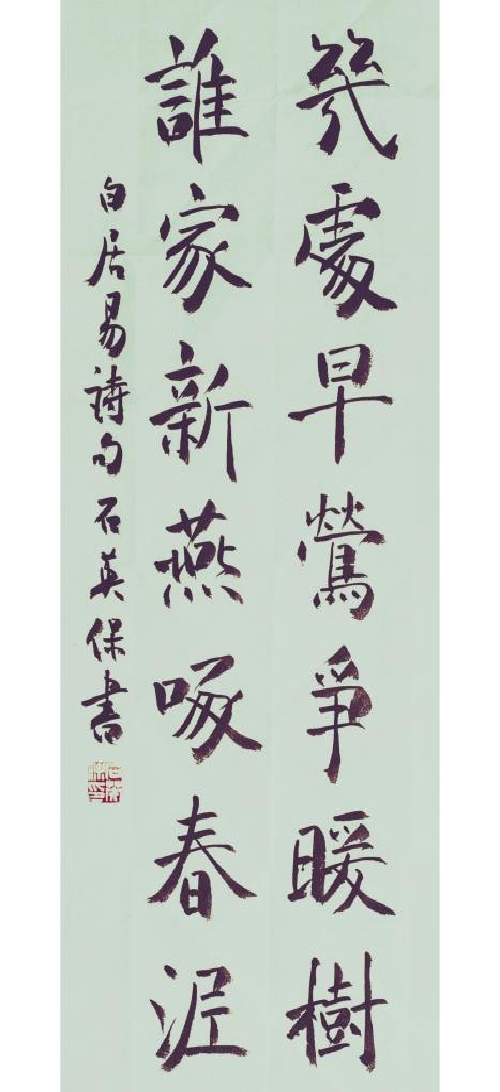 幾處早鶯爭暖樹
誰家新燕啄春泥
白居易詩句石英保書